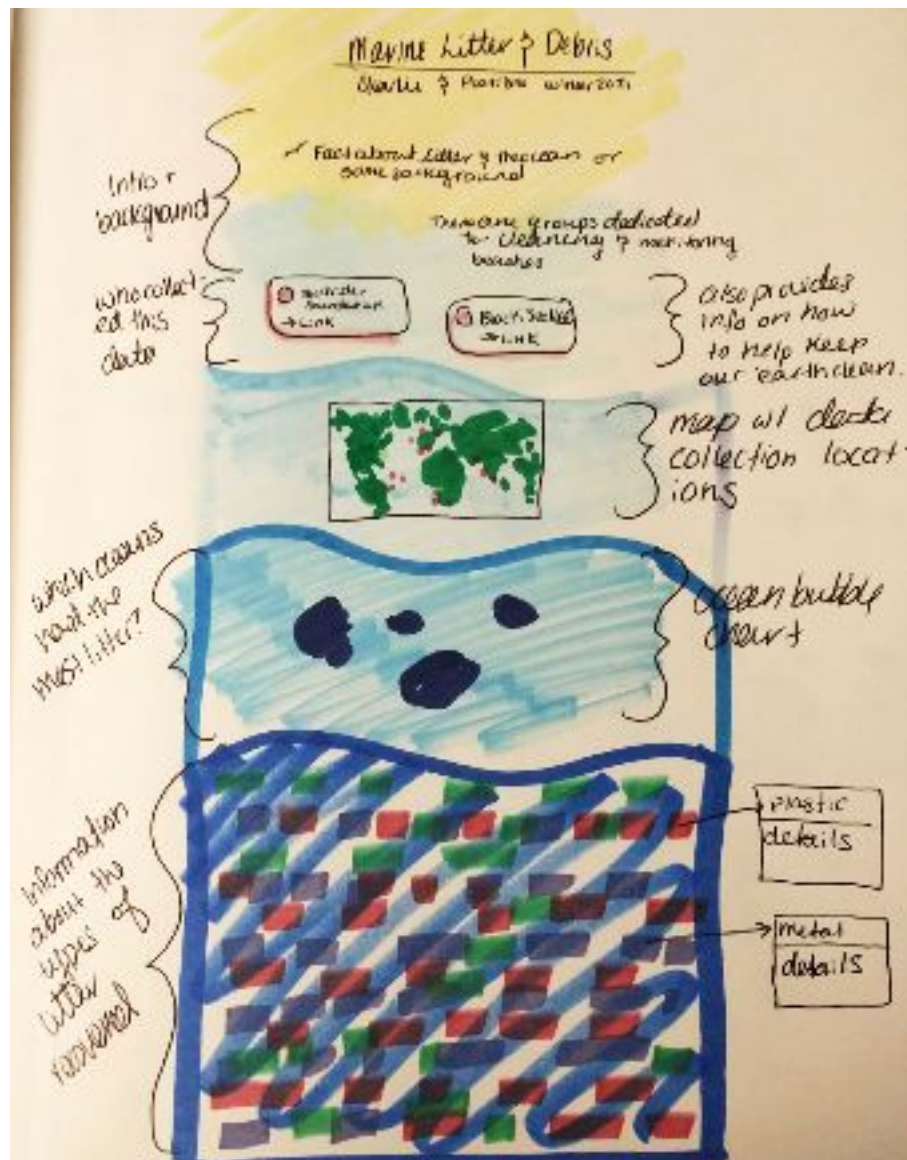 Marine Litter & Debris
winter 2021
Intro +
background
Fact about litter & the ocean or
some background
There are groups dedicated
to cleaning & monitoring
beaches
who collect-
ed this
data
→ Link
→ Link
also provides
info on how
to help keep
our earth clean.
map w/ data
collection locat-
ions
which oceans
had the
most litter?
ocean bubble
chart
Information
about the
types of
litter
recovered
Plastic
details
metal
details